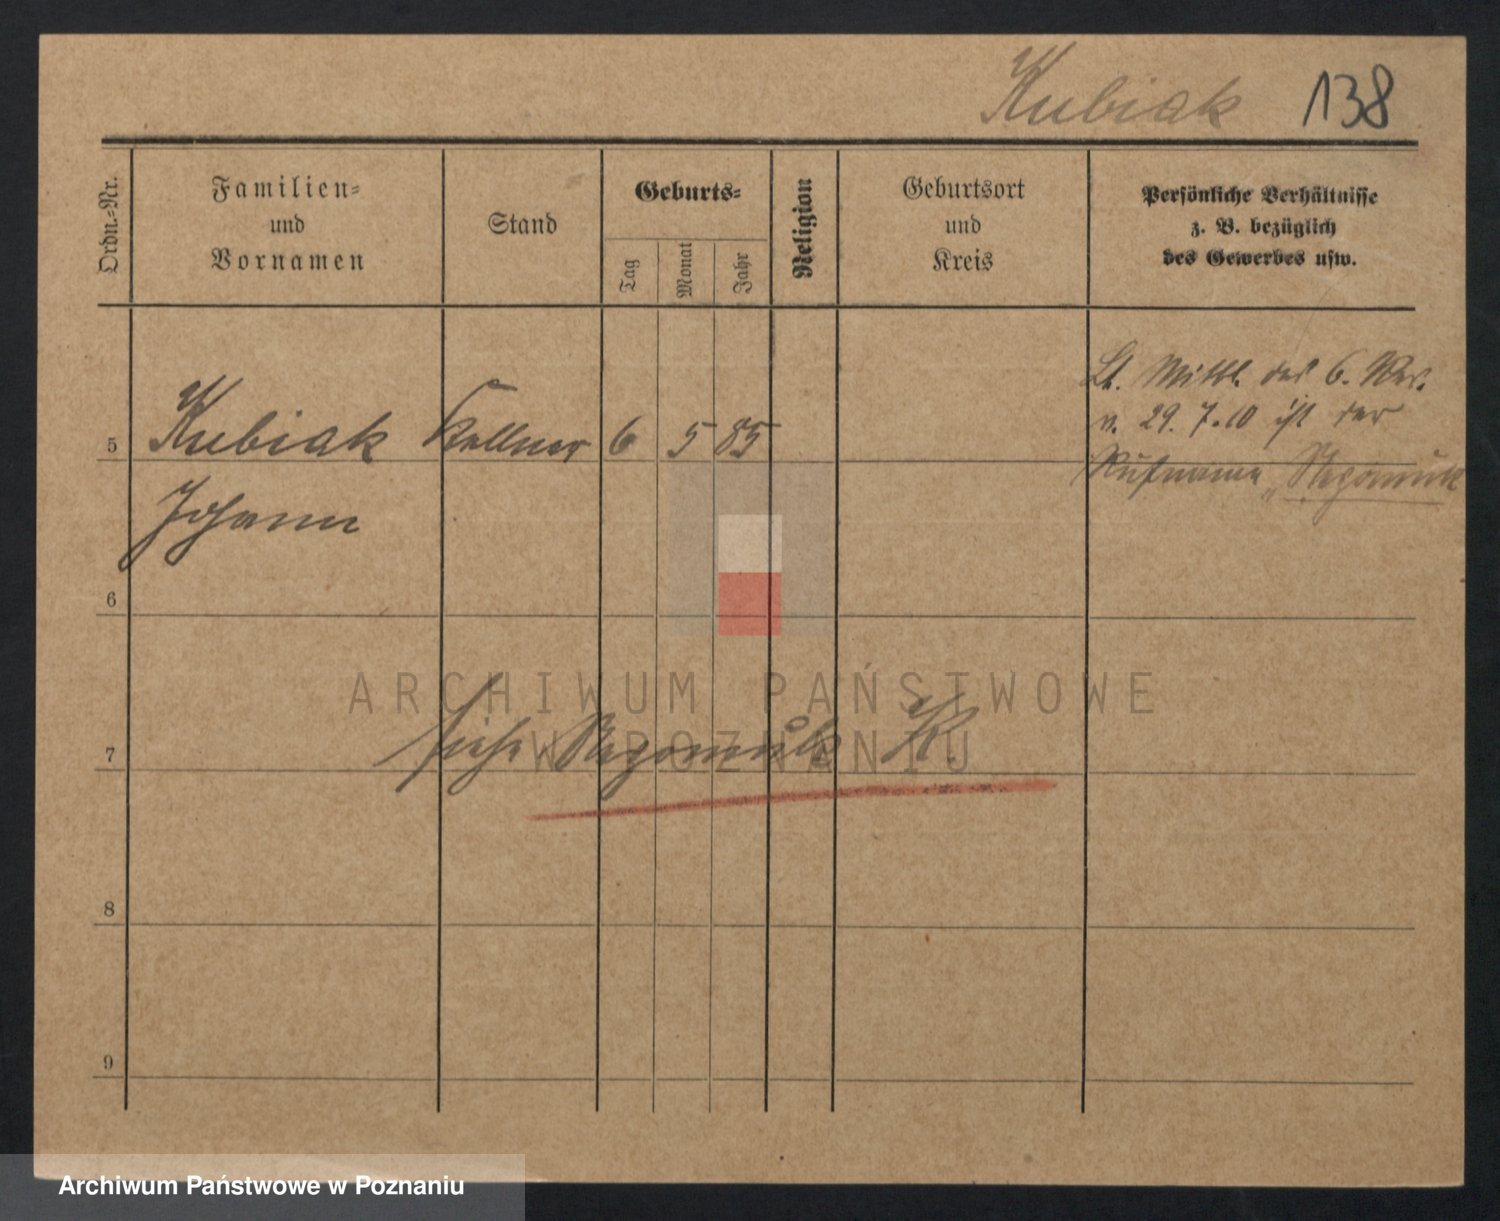 Kubiak 138
Ordn.-Nr.
Familien-
und
Vornamen
Stand
Geburts-
Tag
Monat
Jahr
Religion
Geburtsort
und
Kreis
Persönliche Verhältnisse
z. B. bezüglich
des Gewerbes usw.
Lt. Mittl. des 6. Rev.
v. 29. 7. 10 ist der
Rufname „Nepomuk
5 Kubiak Kellner 6 5 85
Johann
6
ARCHIWUM PAŃSTWOWE
W POZNANIU
7 siehe Nepomuk K.
8
9
Archiwum Państwowe w Poznaniu